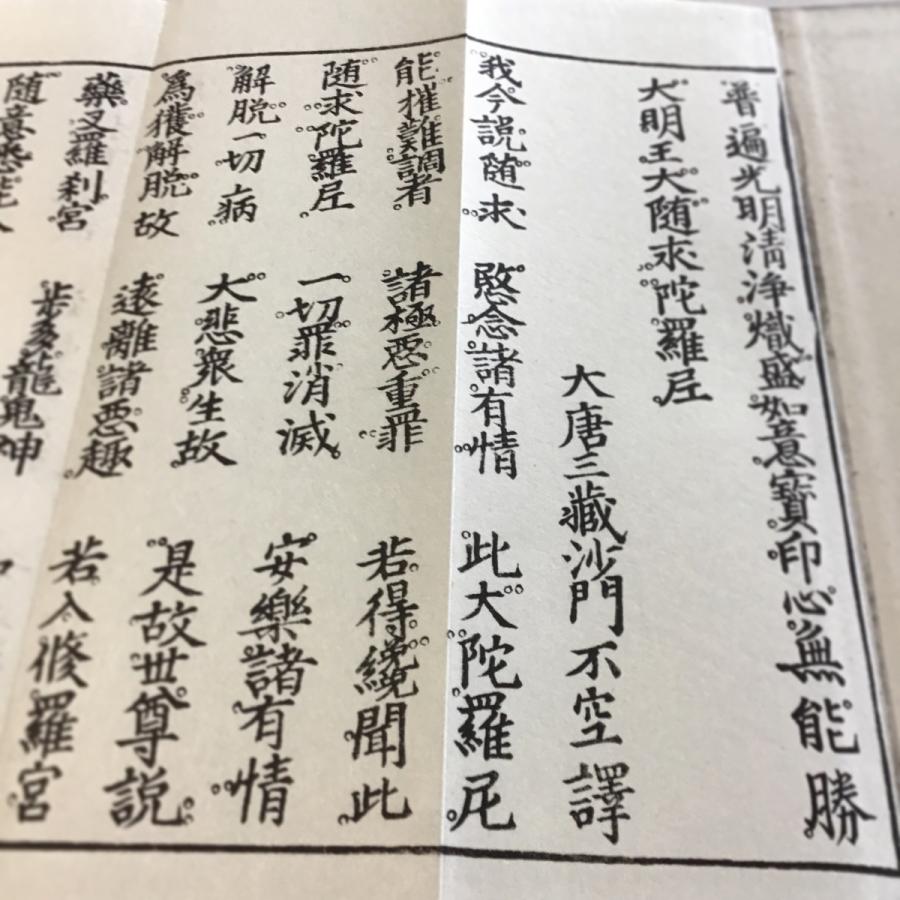 普遍光明清淨熾盛如意寶印心無能勝
大明王大随求陀羅尼
大唐三藏沙門不空譯
我今説随求 愍念諸有情 此大陀羅尼
能摧難調者 諸極悪重罪 若得纔聞此
随求陀羅尼 一切罪消滅 安樂諸有情
解脱一切病 大悲衆生故 是故世尊説
爲獲解脱故 遠離諸悪趣 若入修羅宮
藥叉羅刹宮 步多龍鬼神
随意悉能入